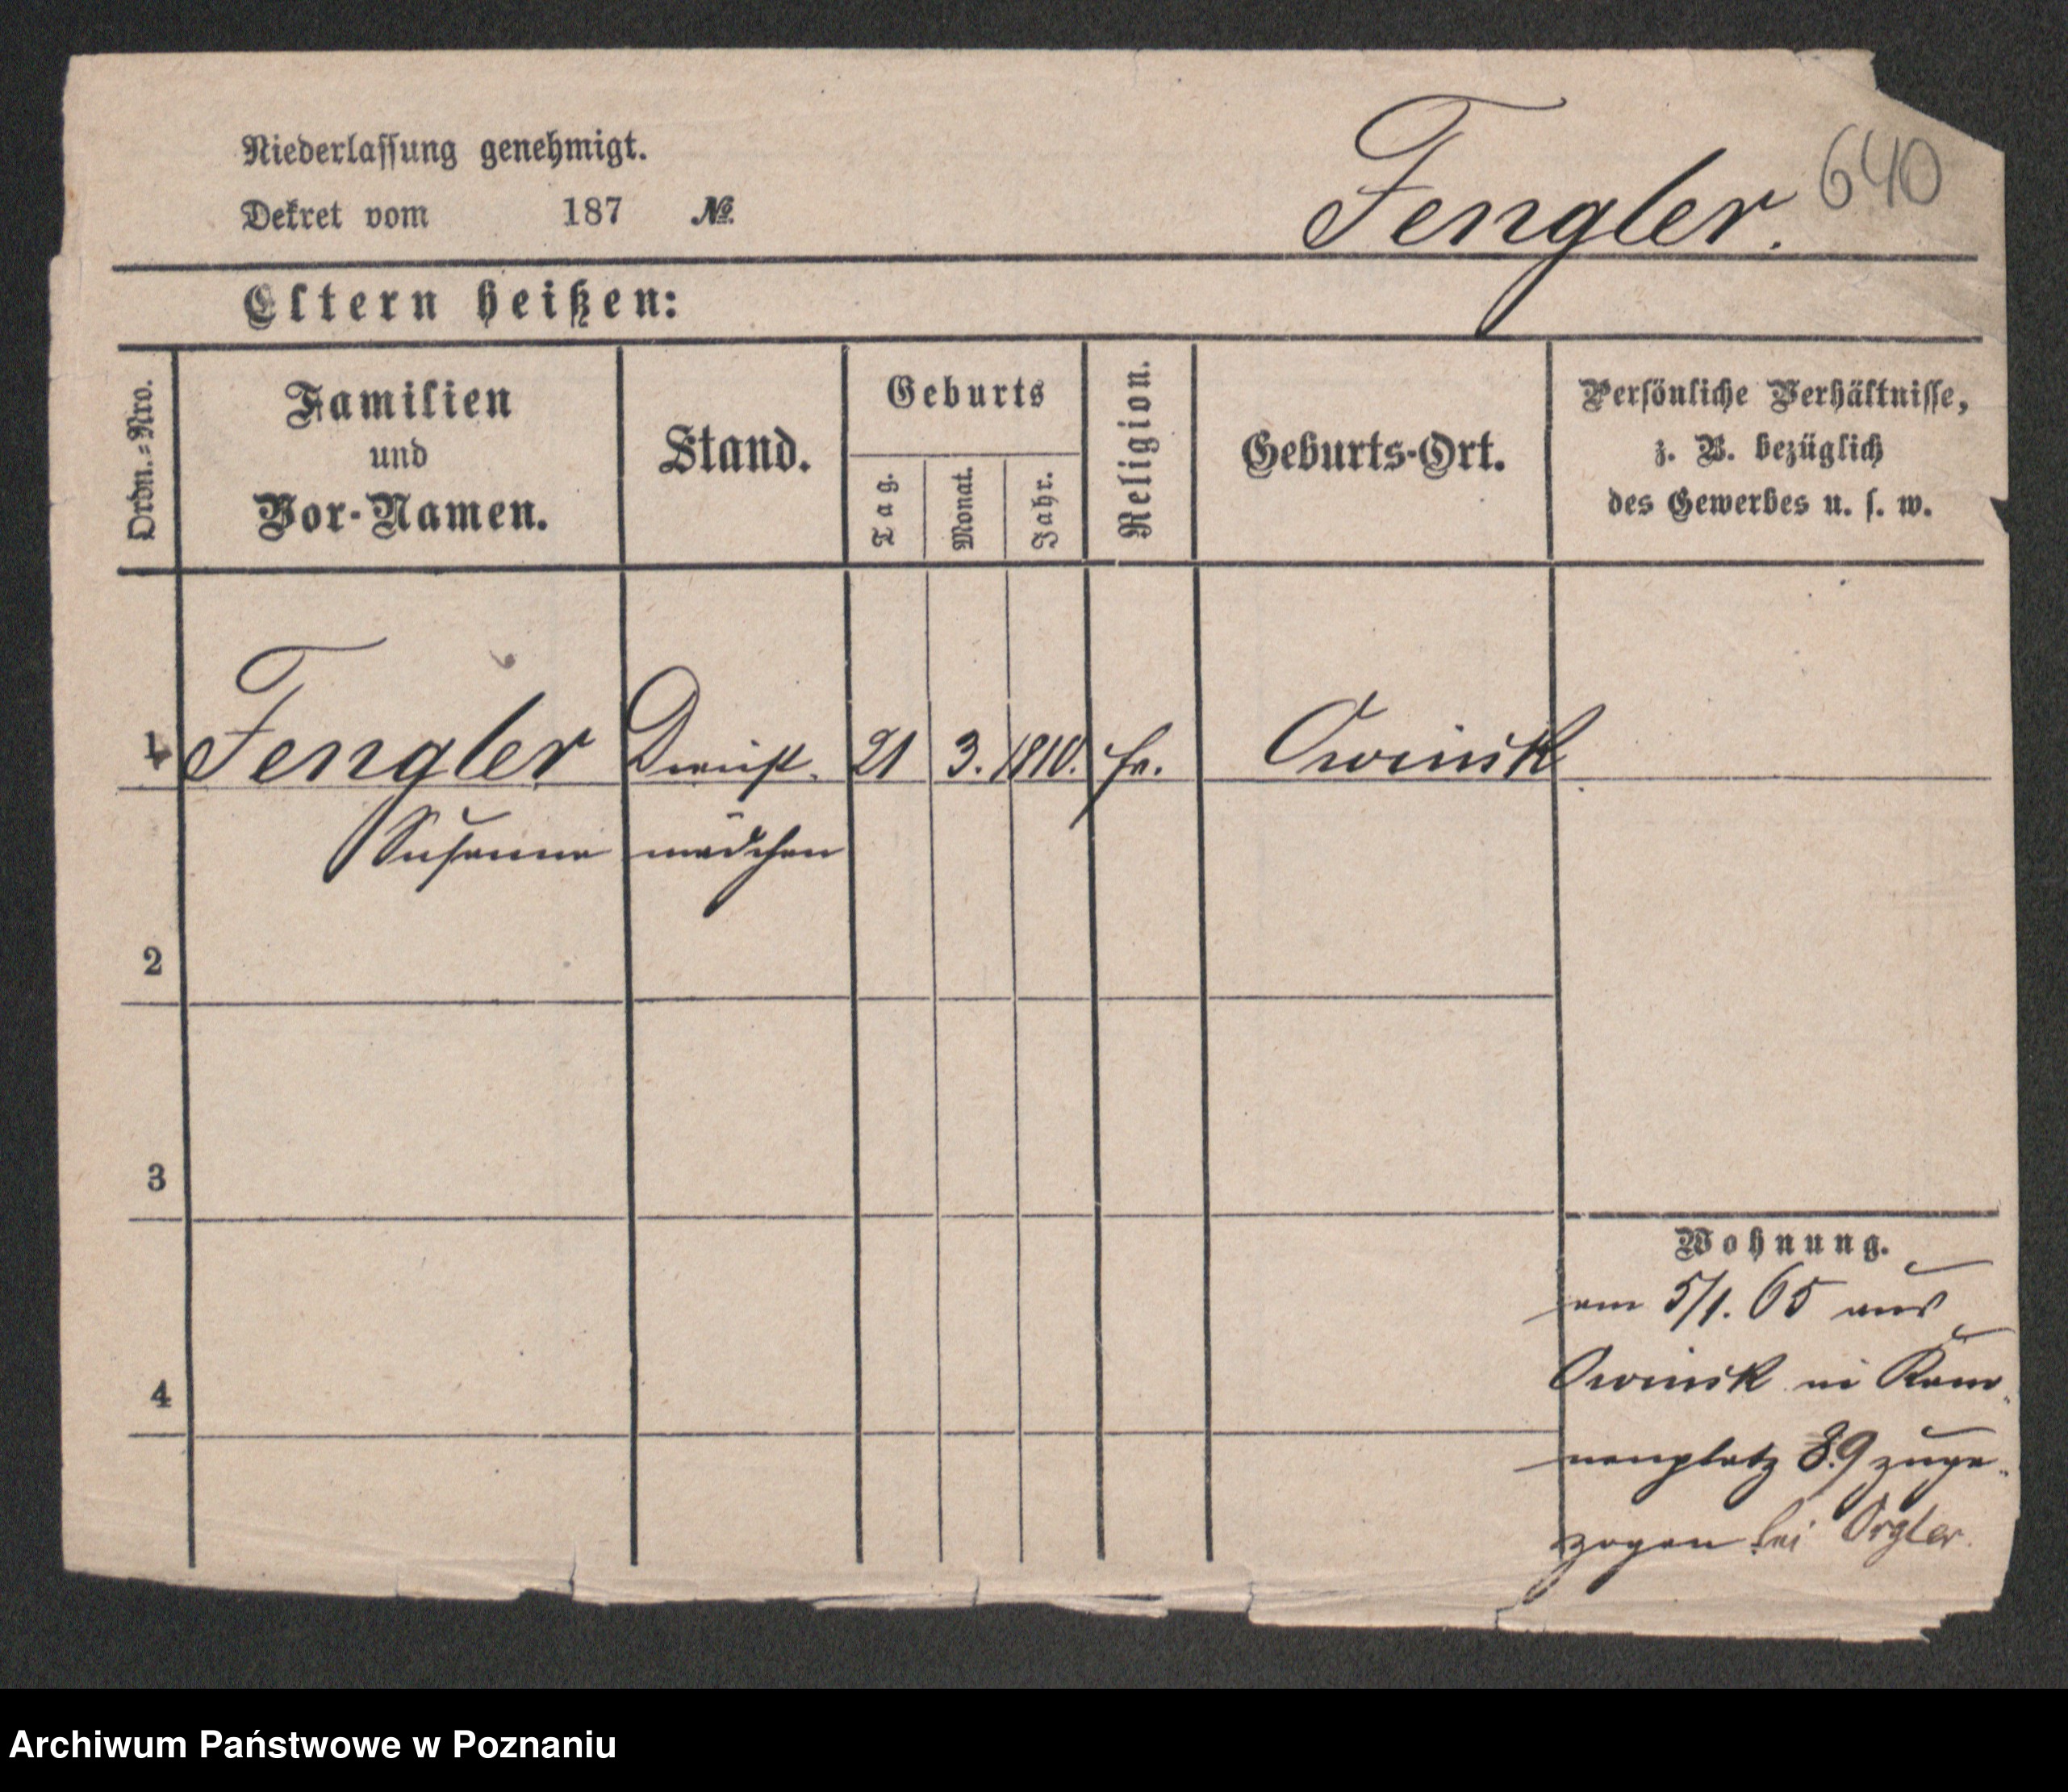 Niederlassung genehmigt.
Dekret vom 187 №.
Fengler.
640
Eltern heißen:
Ordn.=Nro.
Familien
und
Vor-Namen.
Stand.
Geburts
Tag.
Monat.
Jahr.
Religion.
Geburts-Ort.
Persönliche Verhältnisse,
z. B. bezüglich
des Gewerbes u. s. w.
1 Fengler Dienst. 21 3. 1810. Owinsk
Susanna mädchen
2
3
4
Wohnung.
am 5/1. 65 aus
Owinsk in Kano-
nenplatz 8.9 zuge-
zogen bei Orgler.
Archiwum Państwowe w Poznaniu